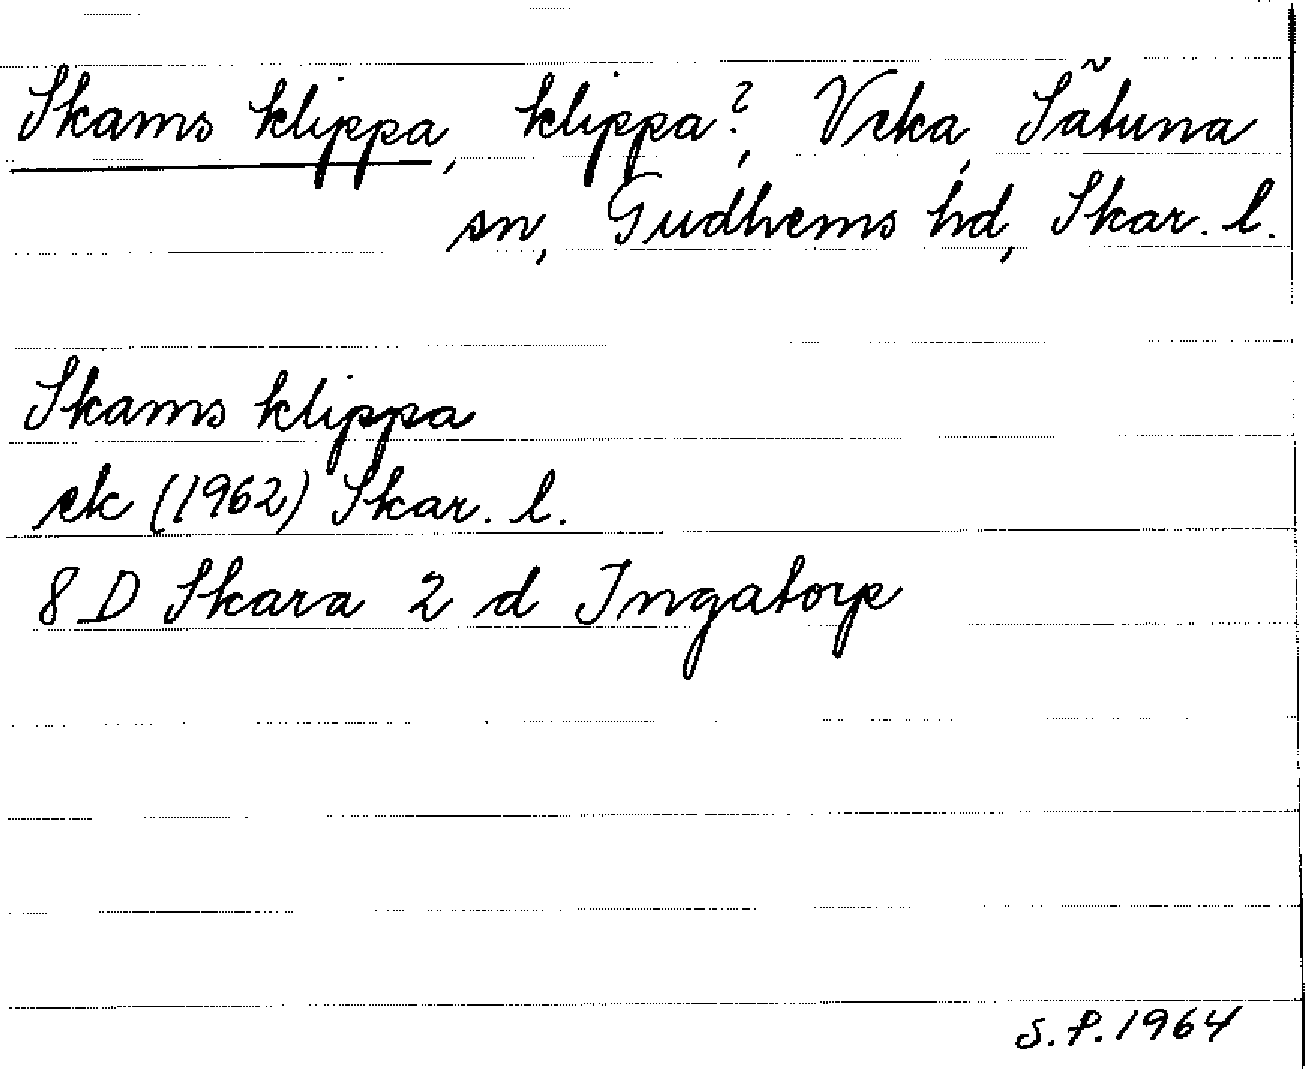 Skams klippa, klippa?, Veka, Sätuna
sn, Gudhems hd, Skar. l.
Skams klippa
ek (1962) Skar. l.
8 D Skara 2 d Ingatorp
S.P. 1964